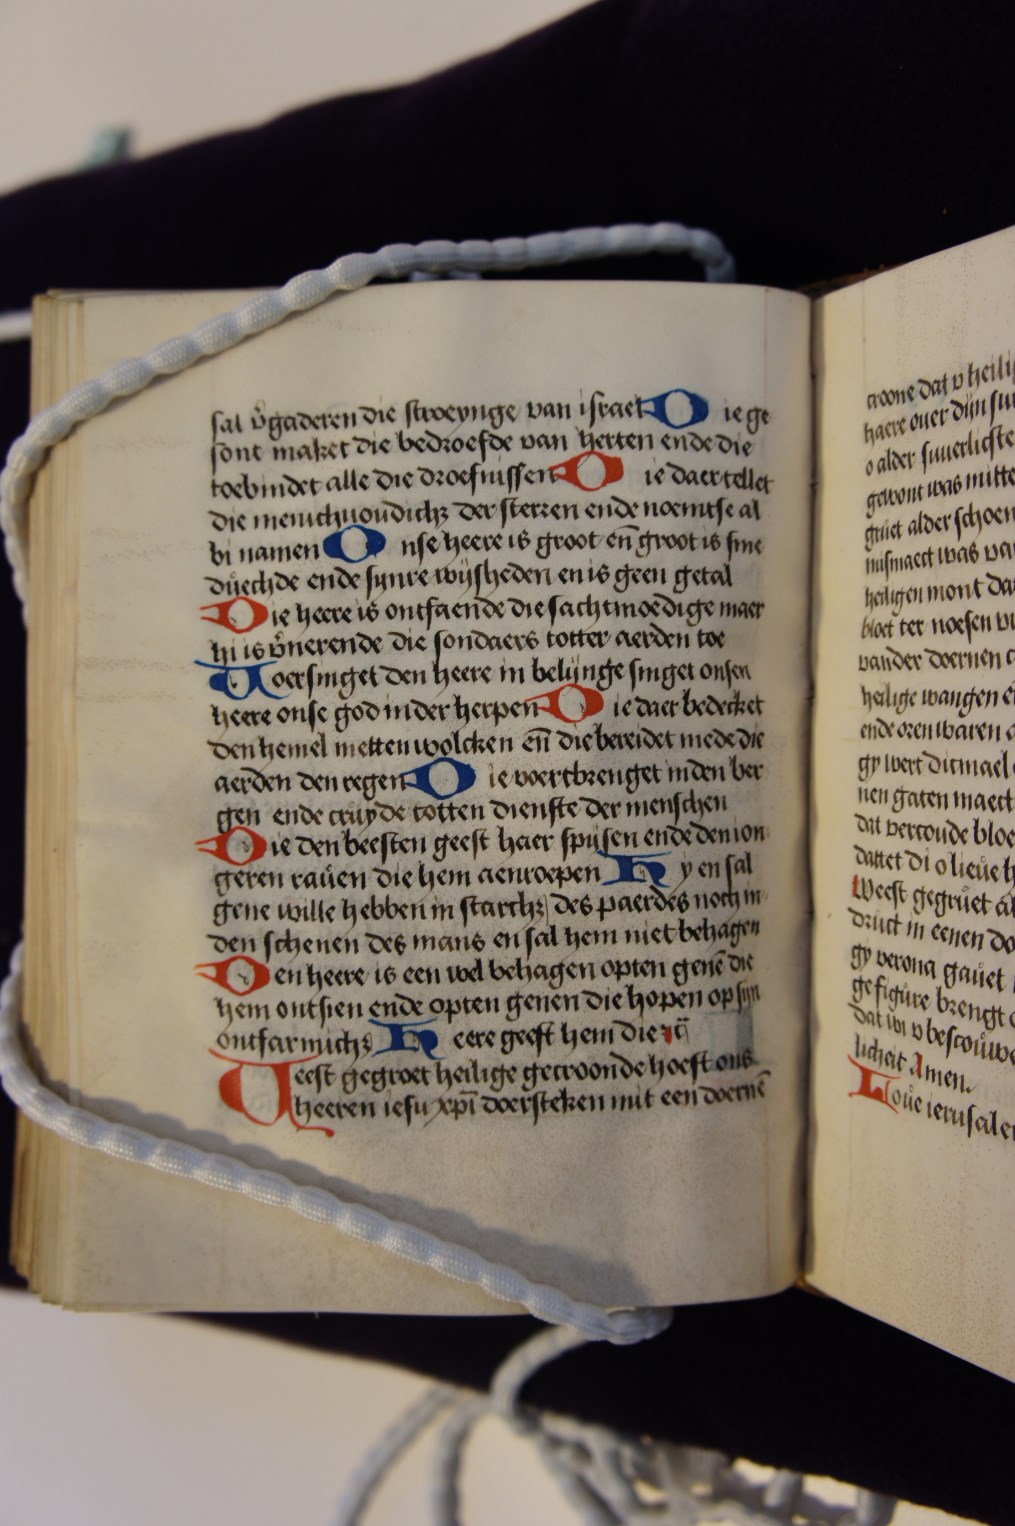 sal v̊gaderen die stroeynge van israel Die ge
sont maket die bedroefde van herten ende die
toebindet alle die droefnissen Die daer tellet
die menichuoudich₃ der sterren ende noemtse al
bi namen Onse heere is groot en̄ groot is sine
duechde ende synre wijsheden en is geen getal
Die heere is ontfaende die sachtmoedige maer
hi is v̊nerende die sondaers totter aerden toe
Voersinget den heere in belijnge singet onsen
heere onse god in der herpen Die daer bedecket
den hemel metten wolcken en̄ die bereidet mede die
aerden den regen Die voertbrenget in den ber
gen ende cruyde totten dienste der menschen
Die den beesten geest haer spijsen ende den ion
geren rauen die hem aenroepen Hy en sal
gene wille hebben in starch₃ des paerdes noch in
den schenen des mans en sal hem niet behagen
Den heere is een wel behagen opten genē die
hem ontsien ende opten genen die hopen op sijn
ontfarmich₃ Heere geeft hem die
Weest gegroet heilige gecroonde hoeft ons
heeren iesu xp̄i doersteken mit een doernē
croone dat v heili
haere ouer dijn su
o alder suuerlicste
gewont was mitte
gruet alder schoen
nusmaect was va
heiligen mont da
bloet ter noesen v
vander doernen c
heilige wangen e
ende oren waren
gy wert ditmael
nen gaten maect
dat vercoude bloe
dattet di o lieue h
Weest gegruet al
druct in eenen do
gy verona gauet
gefigure brengt
dat wi v bescouwe
licheit Amen.
Loue ierusale